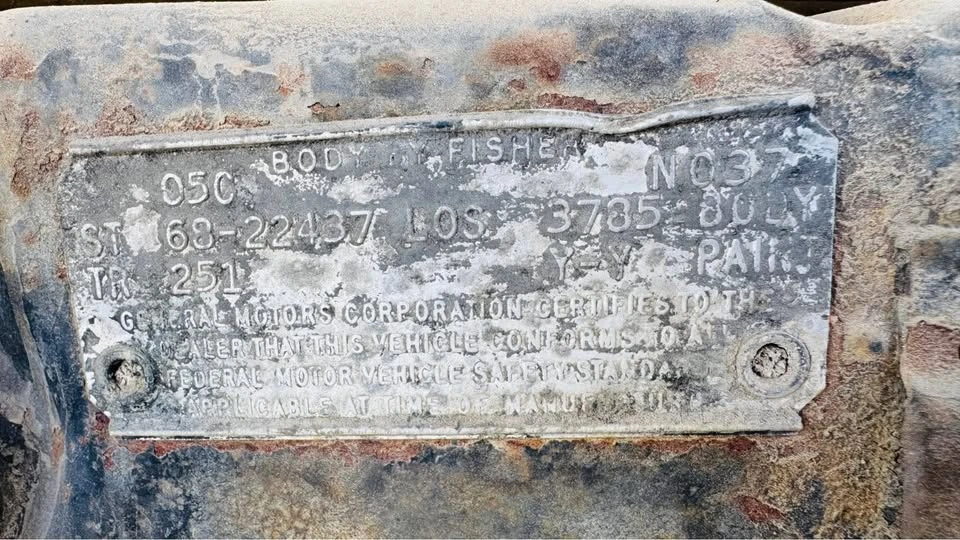 BODY BY FISHER
05C NO37
ST 68-22437 LOS 3785 BODY
TR 251 Y-Y PAINT
GENERAL MOTORS CORPORATION CERTIFIES TO THE
DEALER THAT THIS VEHICLE CONFORMS TO ALL
FEDERAL MOTOR VEHICLE SAFETY STANDARDS
APPLICABLE AT TIME OF MANUFACTURE